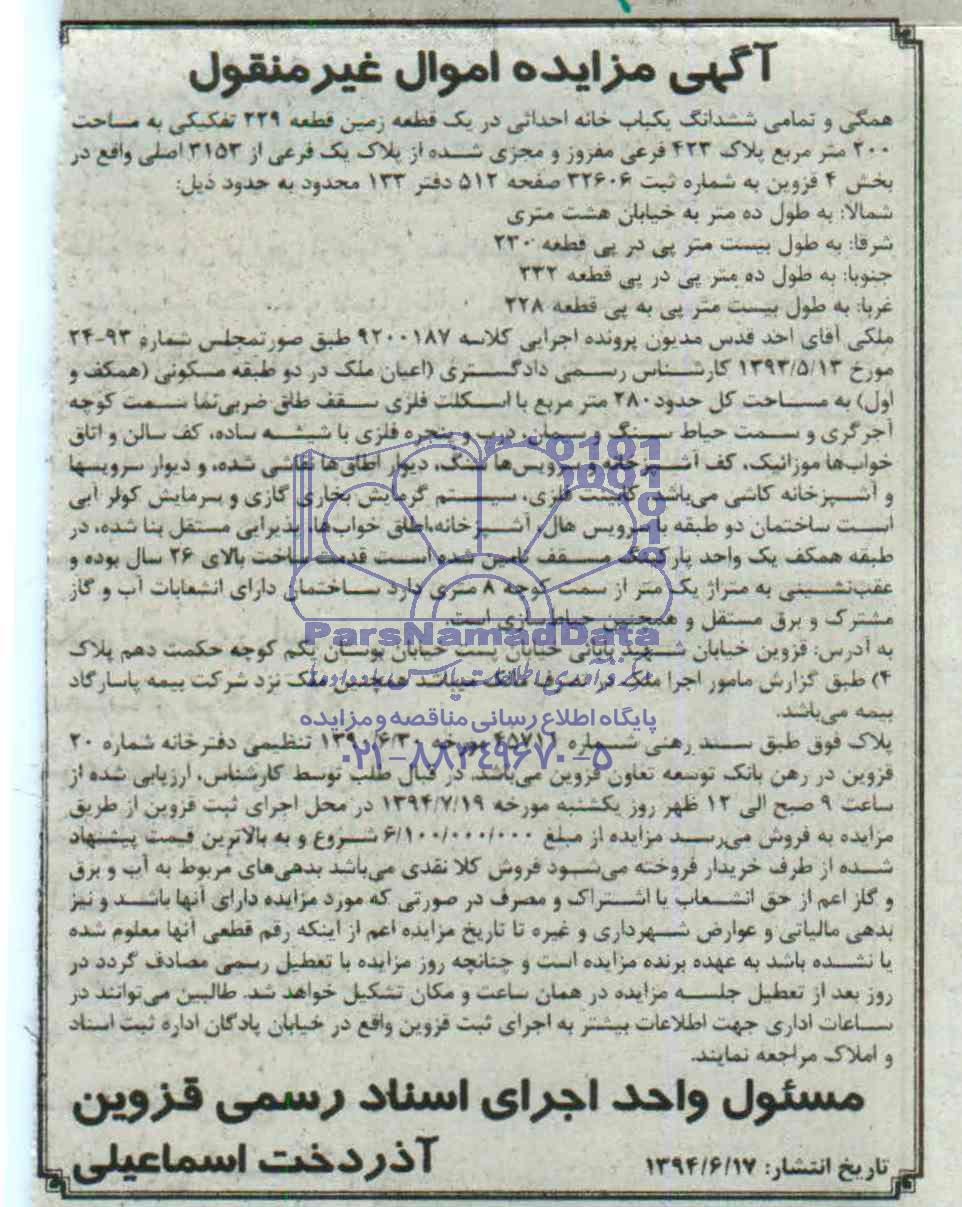 آگهی مزایده اموال غیرمنقول
همگی و تمامی ششدانگ یکباب خانه احداثی در یک قطعه زمین قطعه ۲۲۹ تفکیکی به مساحت
۲۰۰ متر مربع پلاک ۴۲۳ فرعی مفروز و مجزی شده از پلاک یک فرعی از ۳۱۵۳ اصلی واقع در
بخش ۴ قزوین به شماره ثبت ۳۲۶۰۶ صفحه ۵۱۲ دفتر ۱۳۳ محدود به حدود ذیل:
شمالا: به طول ده متر به خیابان هشت متری
شرقا: به طول بیست متر پی در پی قطعه ۲۳۰
جنوبا: به طول ده متر پی در پی قطعه ۲۳۲
غربا: به طول بیست متر پی به پی قطعه ۲۲۸
ملکی آقای احد قدس مدیون پرونده اجرایی کلاسه ۹۲۰۰۱۸۷ طبق صورتمجلس شماره ۹۳-۲۴
مورخ ۱۳۹۳/۵/۱۳ کارشناس رسمی دادگستری (اعیان ملک در دو طبقه مسکونی (همکف و
اول) به مساحت کل حدود ۲۸۰ متر مربع با اسکلت فلزی سقف طاق ضربی نما سمت کوچه
آجرگری و سمت حیاط سنگ و سیمان، درب و پنجره فلزی با شیشه ساده، کف سالن و اتاق
خواب‌ها موزائیک، کف آشپزخانه و سرویس‌ها سنگ، دیوار اطاق‌ها نقاشی شده، و دیوار سرویسها
و آشپزخانه کاشی می‌باشد، کابینت فلزی، سیستم گرمایش بخاری گازی و سرمایش کولر آبی
است ساختمان دو طبقه با سرویس هال، آشپزخانه، اطاق خواب‌ها، پذیرایی مستقل بنا شده، در
طبقه همکف یک واحد پارکینگ مسقف تامین شده است قدمت ساخت بالای ۲۶ سال بوده و
عقب‌نشینی به متراژ یک متر از سمت کوچه ۸ متری دارد ساختمان دارای انشعابات آب و گاز
مشترک و برق مستقل و همچنین حیاط‌سازی است.
به آدرس: قزوین خیابان شهید بابائی خیابان پست خیابان بوستان یکم کوچه حکمت دهم پلاک
۴) طبق گزارش مامور اجرا ملک در تصرف مالک میباشد همچنین ملک نزد شرکت بیمه پاسارگاد
بیمه می‌باشد.
پلاک فوق طبق سند رهنی شماره ۴۵۷۱۶ مورخه ۱۳۹۰/۶/۳۰ تنظیمی دفترخانه شماره ۲۰
قزوین در رهن بانک توسعه تعاون قزوین می‌باشد. در قبال طلب توسط کارشناس، ارزیابی شده از
ساعت ۹ صبح الی ۱۲ ظهر روز یکشنبه مورخه ۱۳۹۴/۷/۱۹ در محل اجرای ثبت قزوین از طریق
مزایده به فروش می‌رسد مزایده از مبلغ ۶/۱۰۰/۰۰۰/۰۰۰ شروع و به بالاترین قیمت پیشنهاد
شده از طرف خریدار فروخته می‌شود فروش کلا نقدی می‌باشد بدهی‌های مربوط به آب و برق
و گاز اعم از حق انشعاب یا اشتراک و مصرف در صورتی که مورد مزایده دارای آنها باشد و نیز
بدهی مالیاتی و عوارض شهرداری و غیره تا تاریخ مزایده اعم از اینکه رقم قطعی آنها معلوم شده
یا نشده باشد به عهده برنده مزایده است و چنانچه روز مزایده با تعطیل رسمی مصادف گردد در
روز بعد از تعطیل جلسه مزایده در همان ساعت و مکان تشکیل خواهد شد. طالبین می‌توانند در
ساعات اداری جهت اطلاعات بیشتر به اجرای ثبت قزوین واقع در خیابان پادگان اداره ثبت اسناد
و املاک مراجعه نمایند.
مسئول واحد اجرای اسناد رسمی قزوین
آذردخت اسماعیلی
تاریخ انتشار: ۱۳۹۴/۶/۱۷
ParsNamadData
پایگاه اطلاع رسانی مناقصه و مزایده
۰۲۱-۸۸۳۴۹۶۷۰-۵